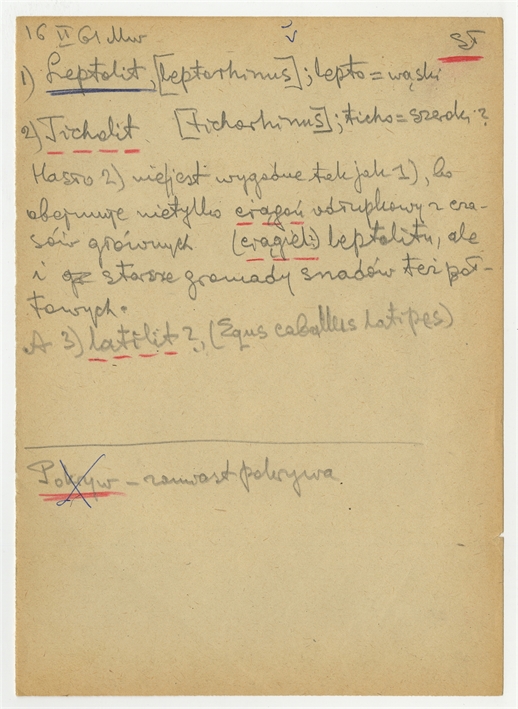 16 II 61 Mw
1) Leptolit, [leptorhinus]; lepto = wąski
2) Ticholit. [tichorhinus]; ticho = szeroki?
Hasło 2) niejest wygodne tak jak 1), bo
obejmuje nietylko ciągoń odłupkowy z cza-
sów głównych (ciągieli) leptolitu, ale
i starsze gromady snadów też poł-
towych.
A 3) latilit?, (Equs caballus latipes)
Pokryw – zamiast pokrywa